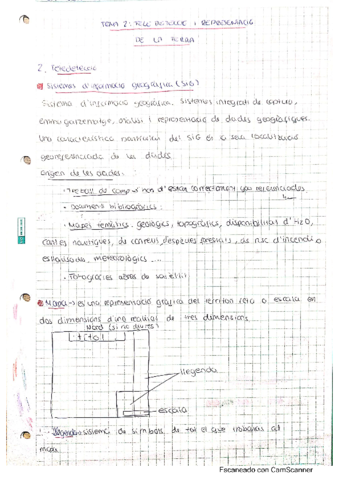 TEMA 2: TELEDETECCIÓ I REPRESENTACIÓ
DE LA TERRA
2. Teledetecció
Sistemes d'informació geogràfica (SIG)
Sistema d'informació geogràfica. Sistemes integrats de captura,
emmagatzematge, anàlisi i representació de dades geogràfiques.
Una característica particular del SIG és la seva localització
georeferenciada de les dades.
Origen de les dades:
· Treball de camp
· Documents bibliogràfics
· Mapes temàtics: geològics, topogràfics, disponibilitat d'H2O,
cartes nàutiques, de conreus, despeses forestals, de risc d'incendi o
esquiades, meteorològics ...
· Fotografies aèries de satèl·lit
Mapa → és una representació gràfica del territori feta a escala en
dos dimensions d'una realitat de tres dimensions.
Nord (si no diu res)
títol
llegenda
escala
· Llegenda → sistema de símbols de tot el que trobaràs al
mapa
Escaneado con CamScanner